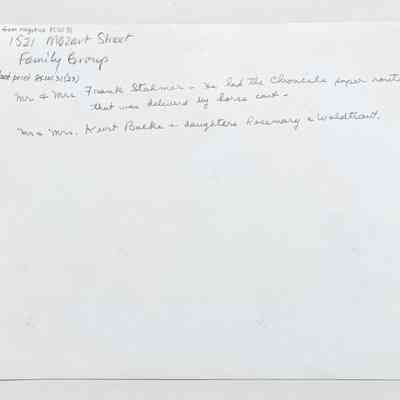 from negative
1521 Mozart Street
Family Group
Mr & Mrs Frank Stahmer - He had the Chronicle paper route
that was delivered by horse cart -
Mr & Mrs. Kurt Badke & daughters Rosemary & Waldtraut.